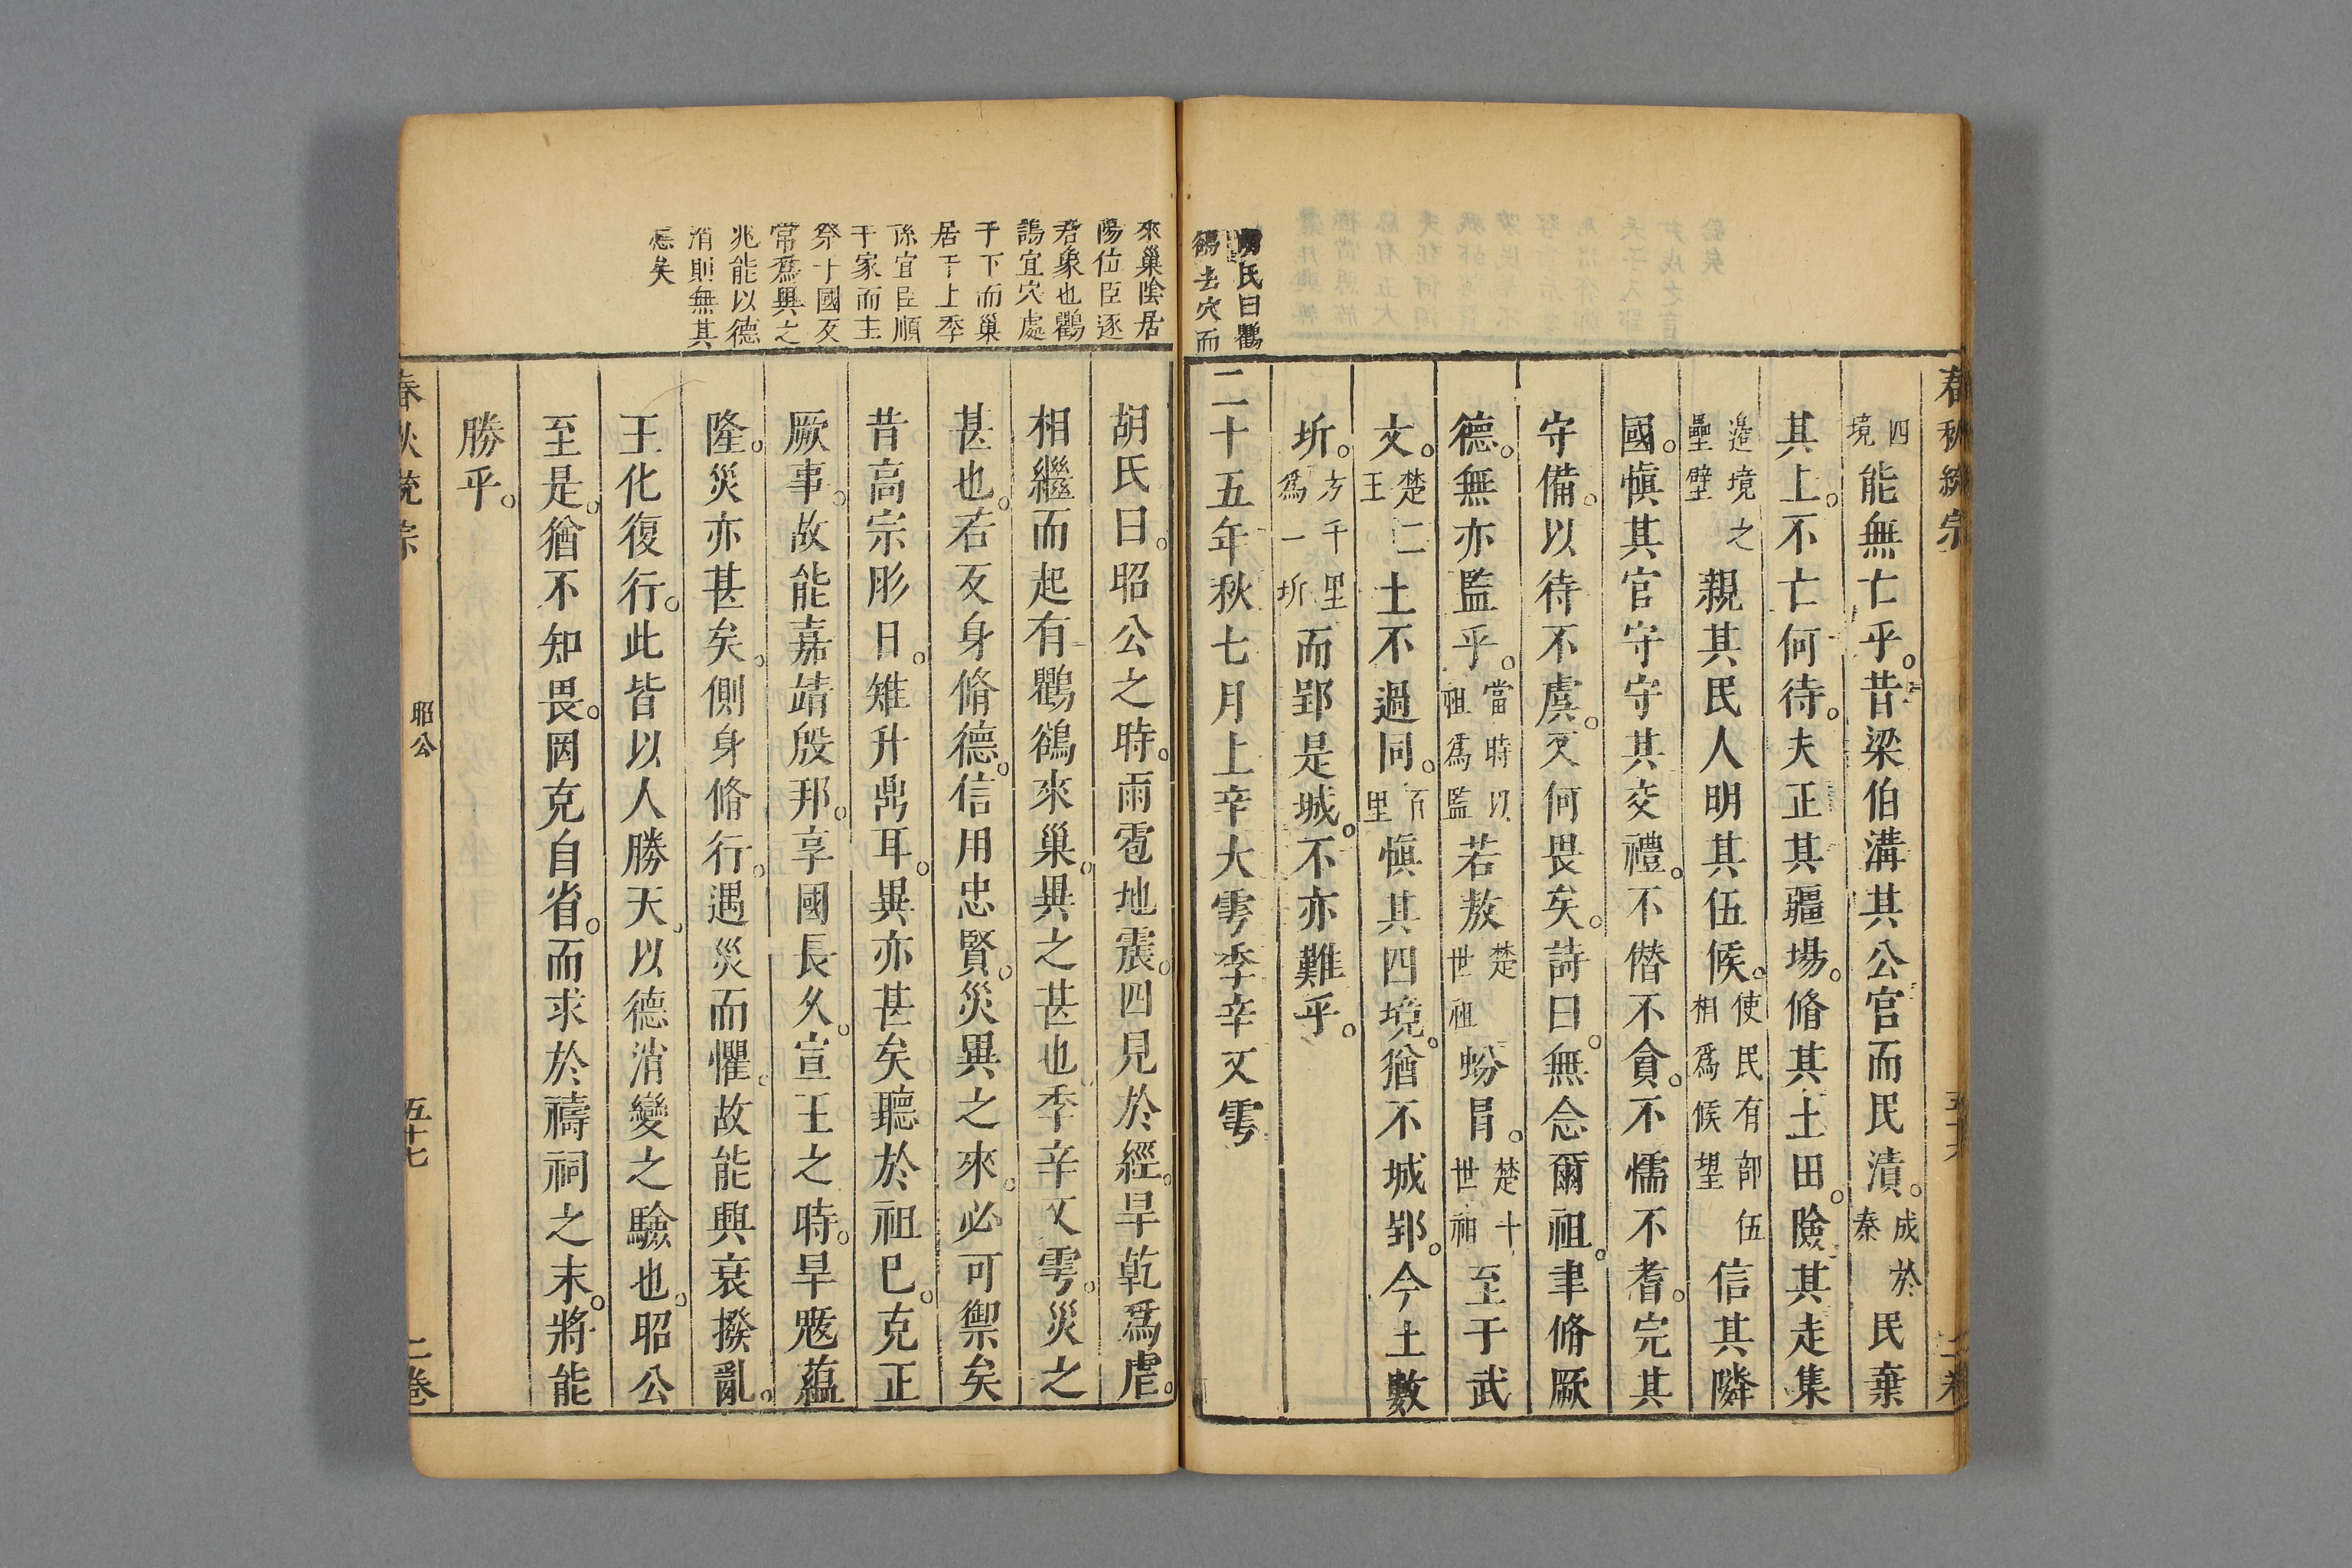 春秋統宗
四境能無亡乎。昔梁伯溝其公宮而民潰。成於秦民棄
其上。不亡何待。夫正其疆場。脩其土田。險其走集
邉境之壘壁親其民人明其伍候。使民有部伍相爲候望信其隣
國。愼其官守守其交禮。不僭不貪。不懦不耆。完其
守備。以待不虞。又何畏矣。詩曰。無念爾祖。聿脩厥
德。無亦監乎。當時以祖爲監若敖楚世祖蚡冐。楚十世祖至于武
文。楚二王土不過同。百里愼其四境。猶不城郢。今土數
圻。方千里爲一圻而郢是城。不亦難乎。
二十五年秋七月上辛大雩季辛又雩
胡氏曰鸜
鵒去穴而
來巢陰居
陽位臣逐
君象也鸜
鵒宜穴處
于下而巢
居于上季
孫宜臣順
于家而主
祭于國反
常爲異之
兆能以德
消則無其
應矣
胡氏曰。昭公之時。雨雹地震。四見於經。旱乾爲虐。
相繼而起有鸜鵒來巢。異之甚也。季辛又雩。災之
甚也。若反身脩德。信用忠賢。災異之來。必可禦矣
昔高宗肜日。雉升鼎耳。異亦甚矣聽於祖已。克正
厥事。故能嘉靖殷邦。享國長久。宣王之時。旱魃蘊
隆。災亦甚矣。側身脩行。遇災而懼。故能興衰撥亂。
王化復行。此皆以人勝天。以德消變之驗也。昭公
至是。猶不知畏。罔克自省。而求於禱祠之末。將能
勝乎。
春秋統宗 昭公 五十七 二卷